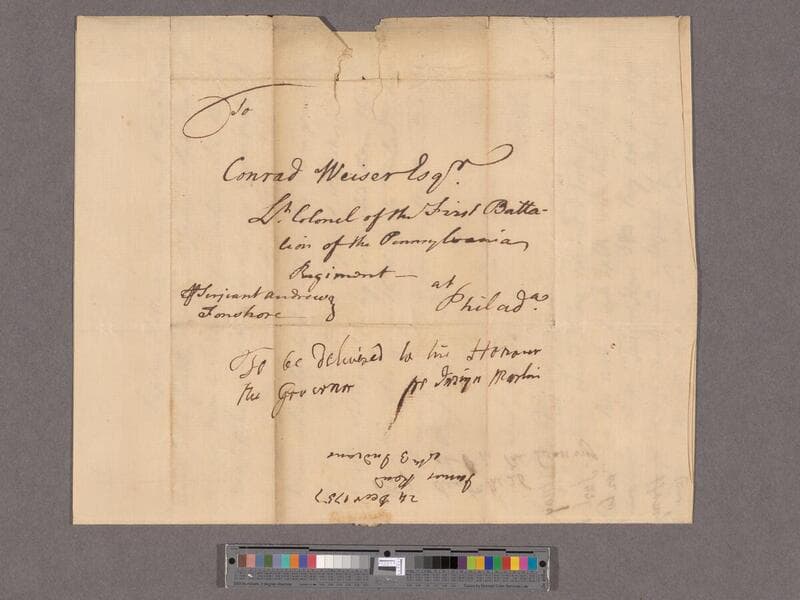 To
Conrad Weiser Esqr.
Lt. Colonel of the First Batta-
lion of the Pennsylvania
Regiment —
at
Philada.
Serjeant Andrew
Fonshore
To be delivered to his Honour
the Governor pr Insign Martin
24 Decr 1757
James Read
3 Indians